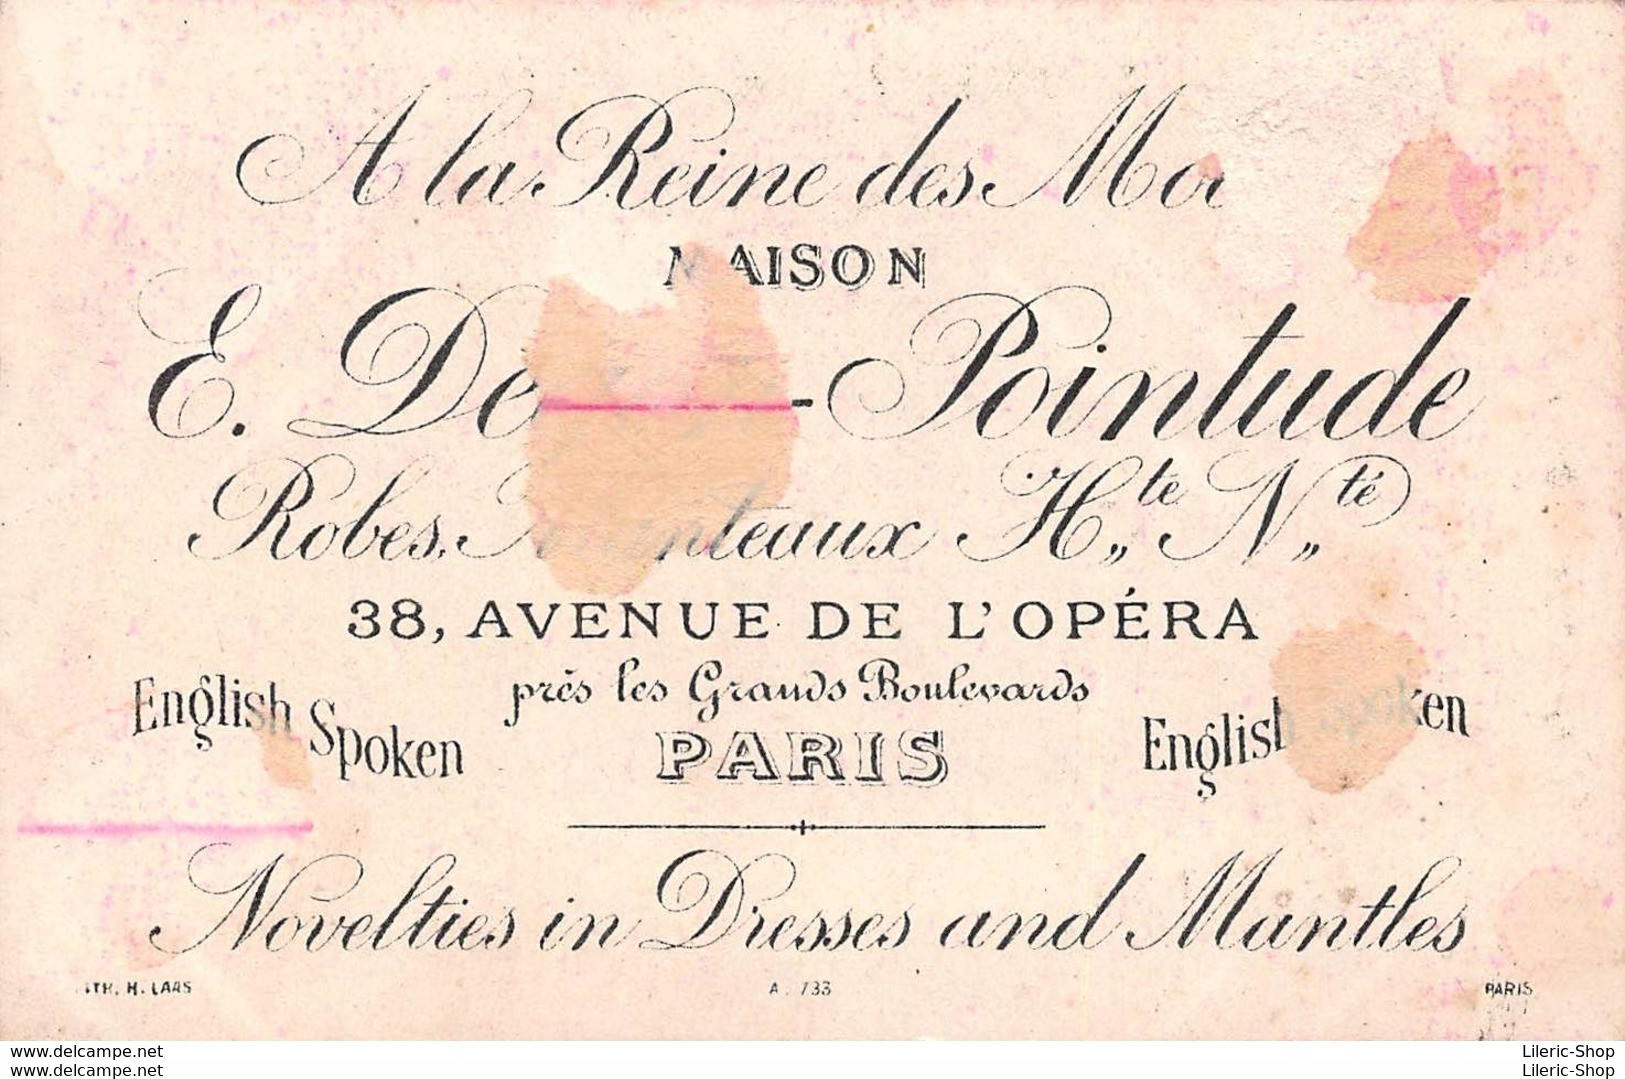 A la Reine des
MAISON
E. -Pointude
Robes, Manteaux Hte Nté
38, AVENUE DE L'OPÉRA
près les Grands Boulevards
English Spoken PARIS English Spoken
Novelties in Dresses and Mantles
LITH. H. LAAS A. 733 PARIS
www.delcampe.net Lileric-Shop
www.delcampe.net Lileric-Shop